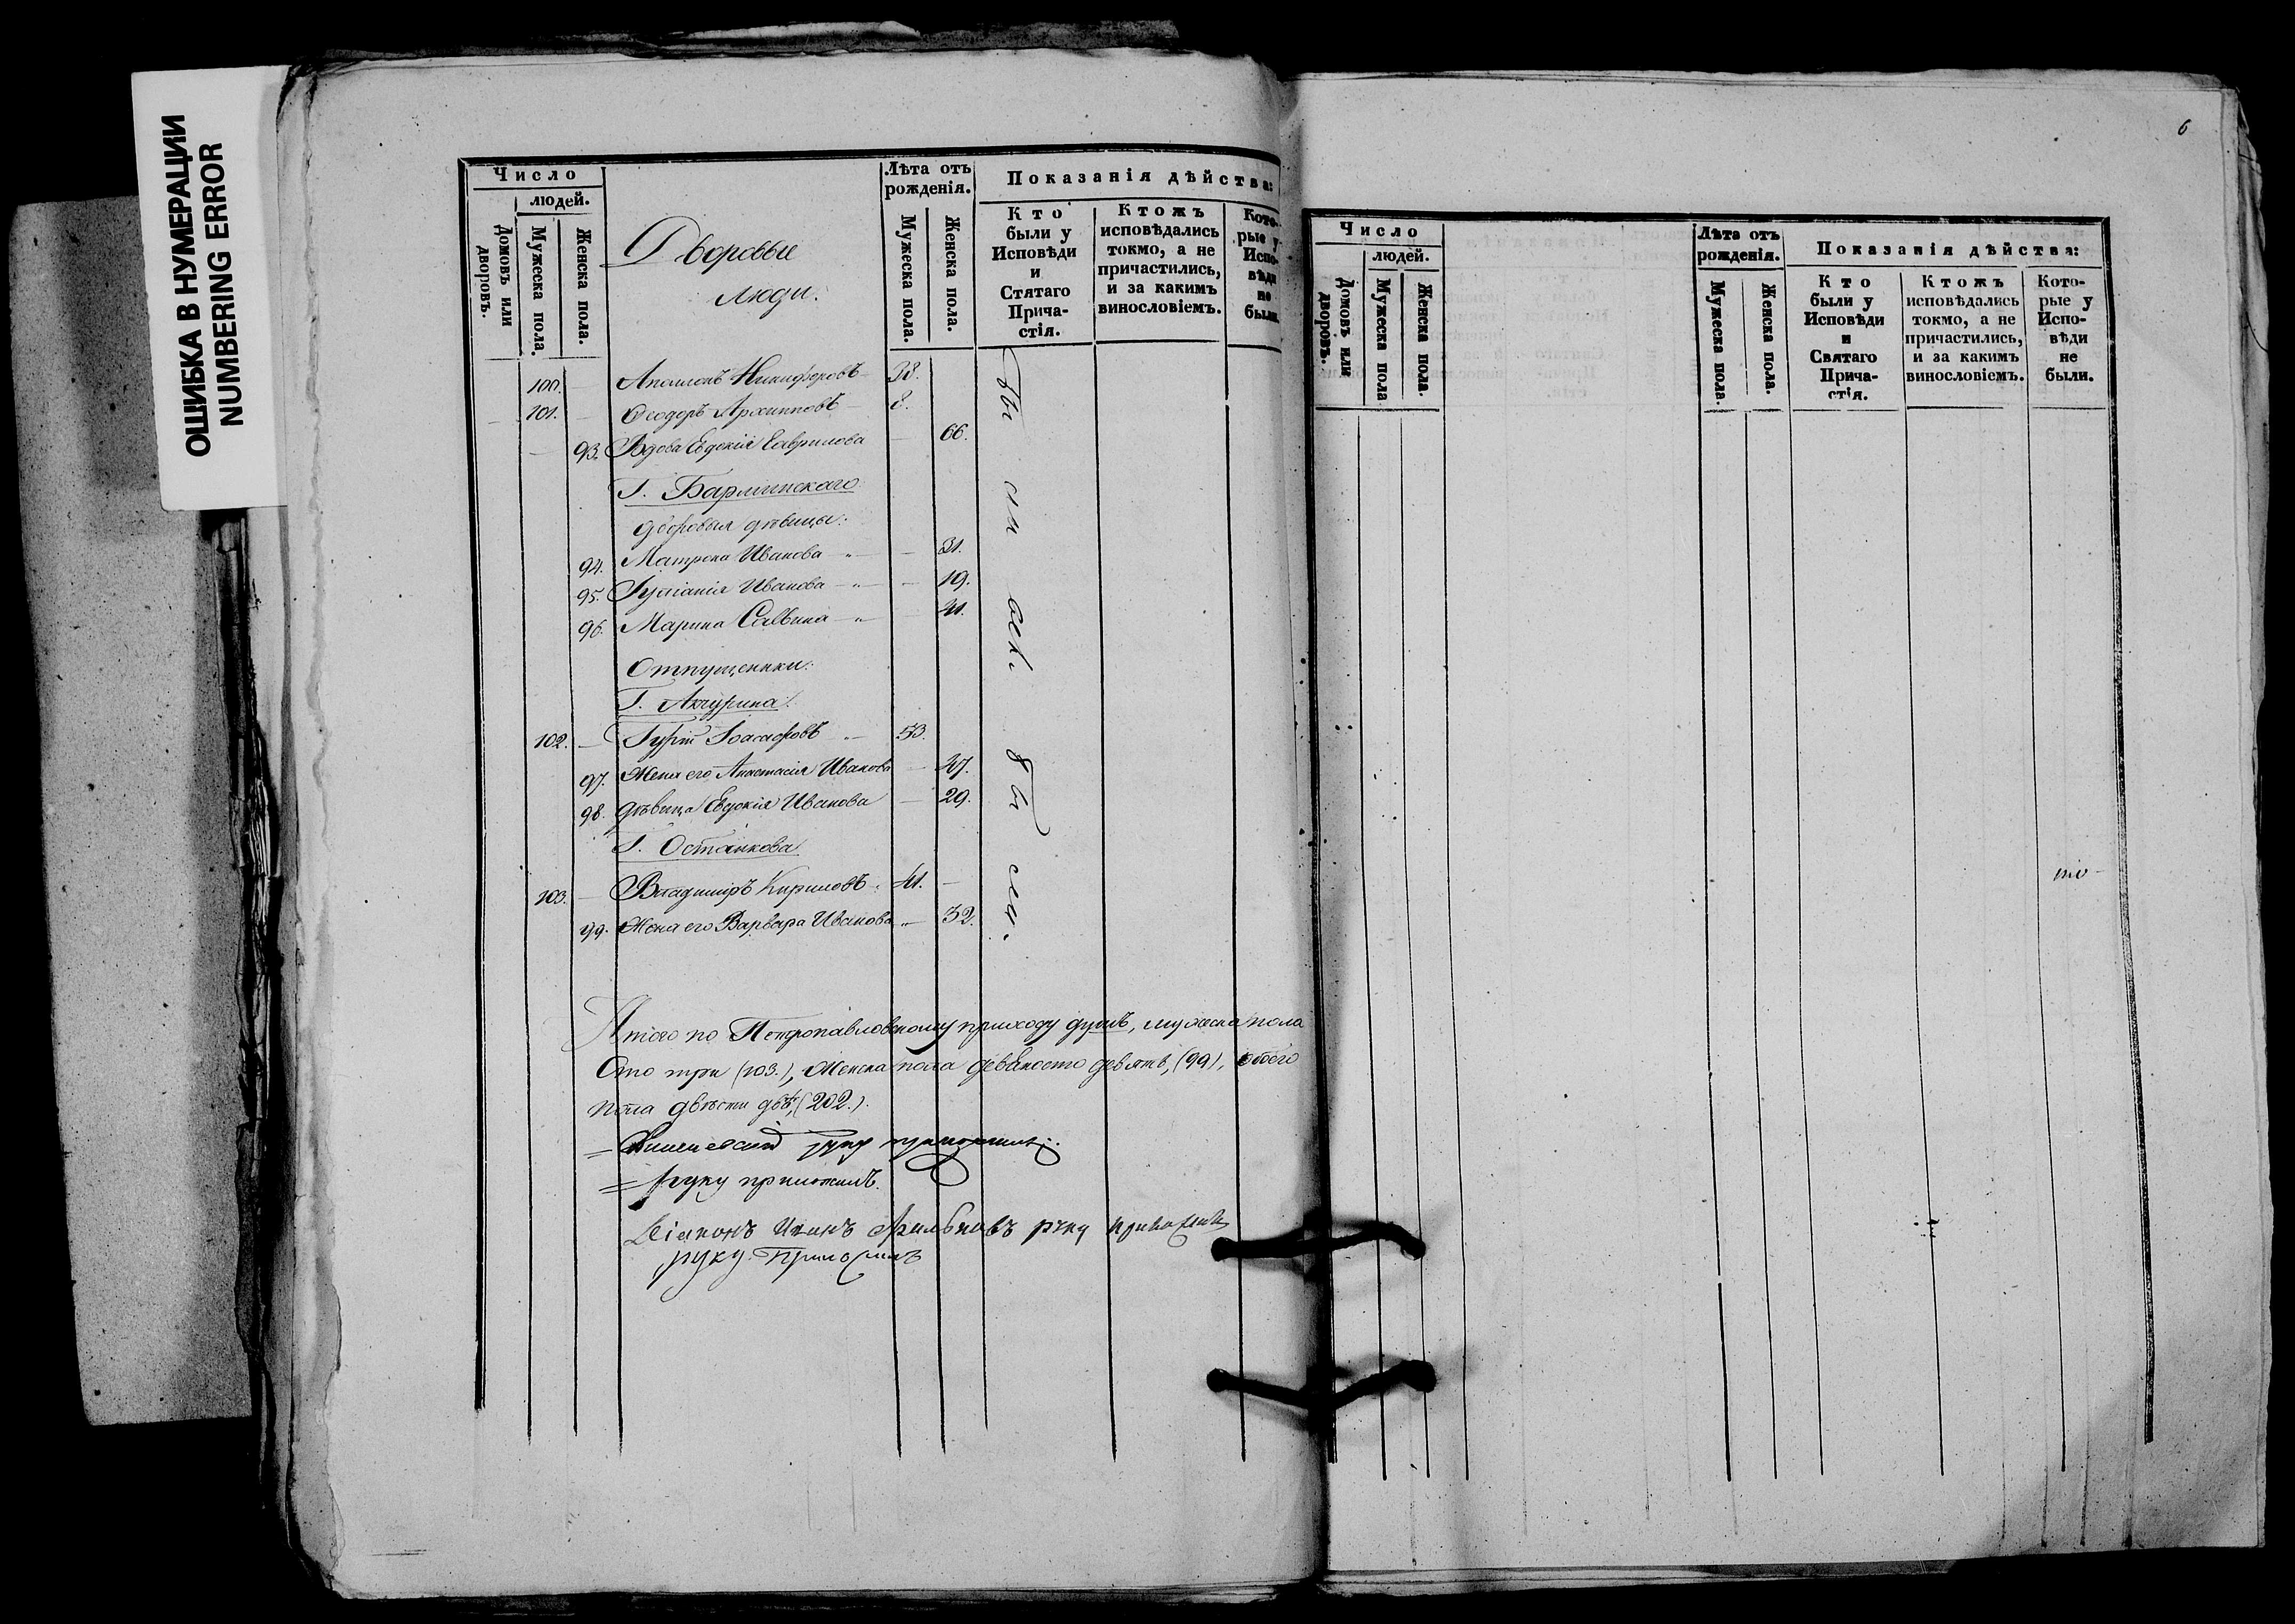 ОШИБКА В НУМЕРАЦИИ
NUMBERING ERROR
Число
людей.
Домовъ или дворовъ.
Мужеска пола.
Женска пола.
Дворовые
люди.
Лѣта отъ рожденія.
Мужеска пола.
Женска пола.
Показанія дѣйства:
Кто были у Исповѣди и Стятаго Прича-стія.
Ктожъ исповѣдались токмо, а не причастились, и за какимъ винословіемъ.
Кото-рые у Испо-вѣди не были.
100. Никифоровъ 38.
101. Ѳеодоръ Архиповъ 8.
93. Вдова Евдокія Гаврилова 66.
Г. Барминскаго
дворовыя дѣвицы:
94. Матрона Иванова 31.
95. Іуліанія Иванова 19.
96. Марина Саввина 41.
Отпущенники:
Г. Акчурина:
102. Гурій Іоасафовъ 53.
97. Жена его Анастасія Иванова 47.
98. дѣвица Евдокія Иванова 29.
Г. Останкова
103. Владиміръ Кириловъ 41.
99. Жена его Варвара Иванова 32.
Итого по Петропавловскому приходу душъ, мужеска пола
Сто три (103.), Женска пола девяносто девять, (99), обоего
пола двѣсти двѣ, (202.).
руку приложилъ.
руку приложилъ.
Діаконъ Иванъ руку приложилъ
руку приложилъ
6
Число
людей.
Домовъ или дворовъ.
Мужеска пола
Женска пола.
Лѣта отъ рожденія.
Мужеска пола.
Женска пола.
Показанія дѣйства:
Кто были у Исповѣди и Святаго Прича-стія.
Ктожъ исповѣдались токмо, а не причастились, и за какимъ винословіемъ.
Кото-рые у Испо-вѣди не были.